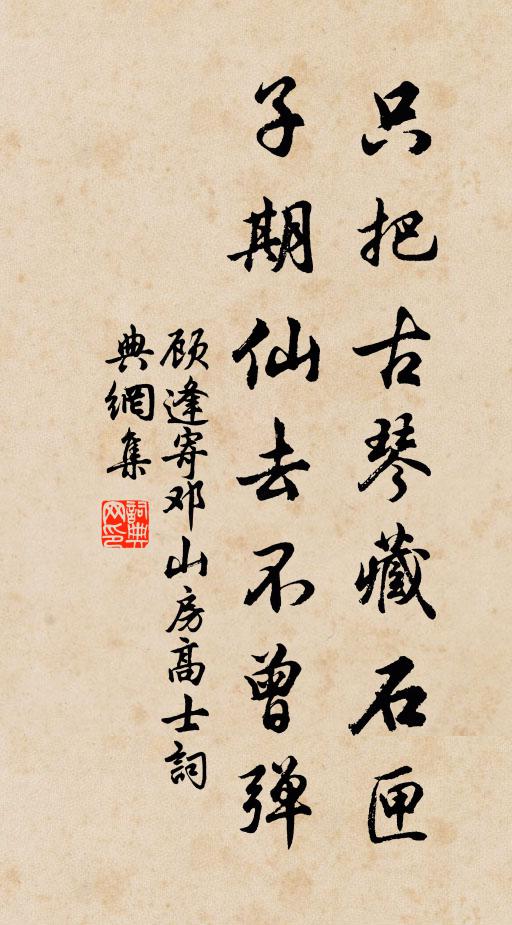 只把古琴藏石匣
子期仙去不曾弹
顾逢寄邓山房高士詞
典網集
詞典
网印